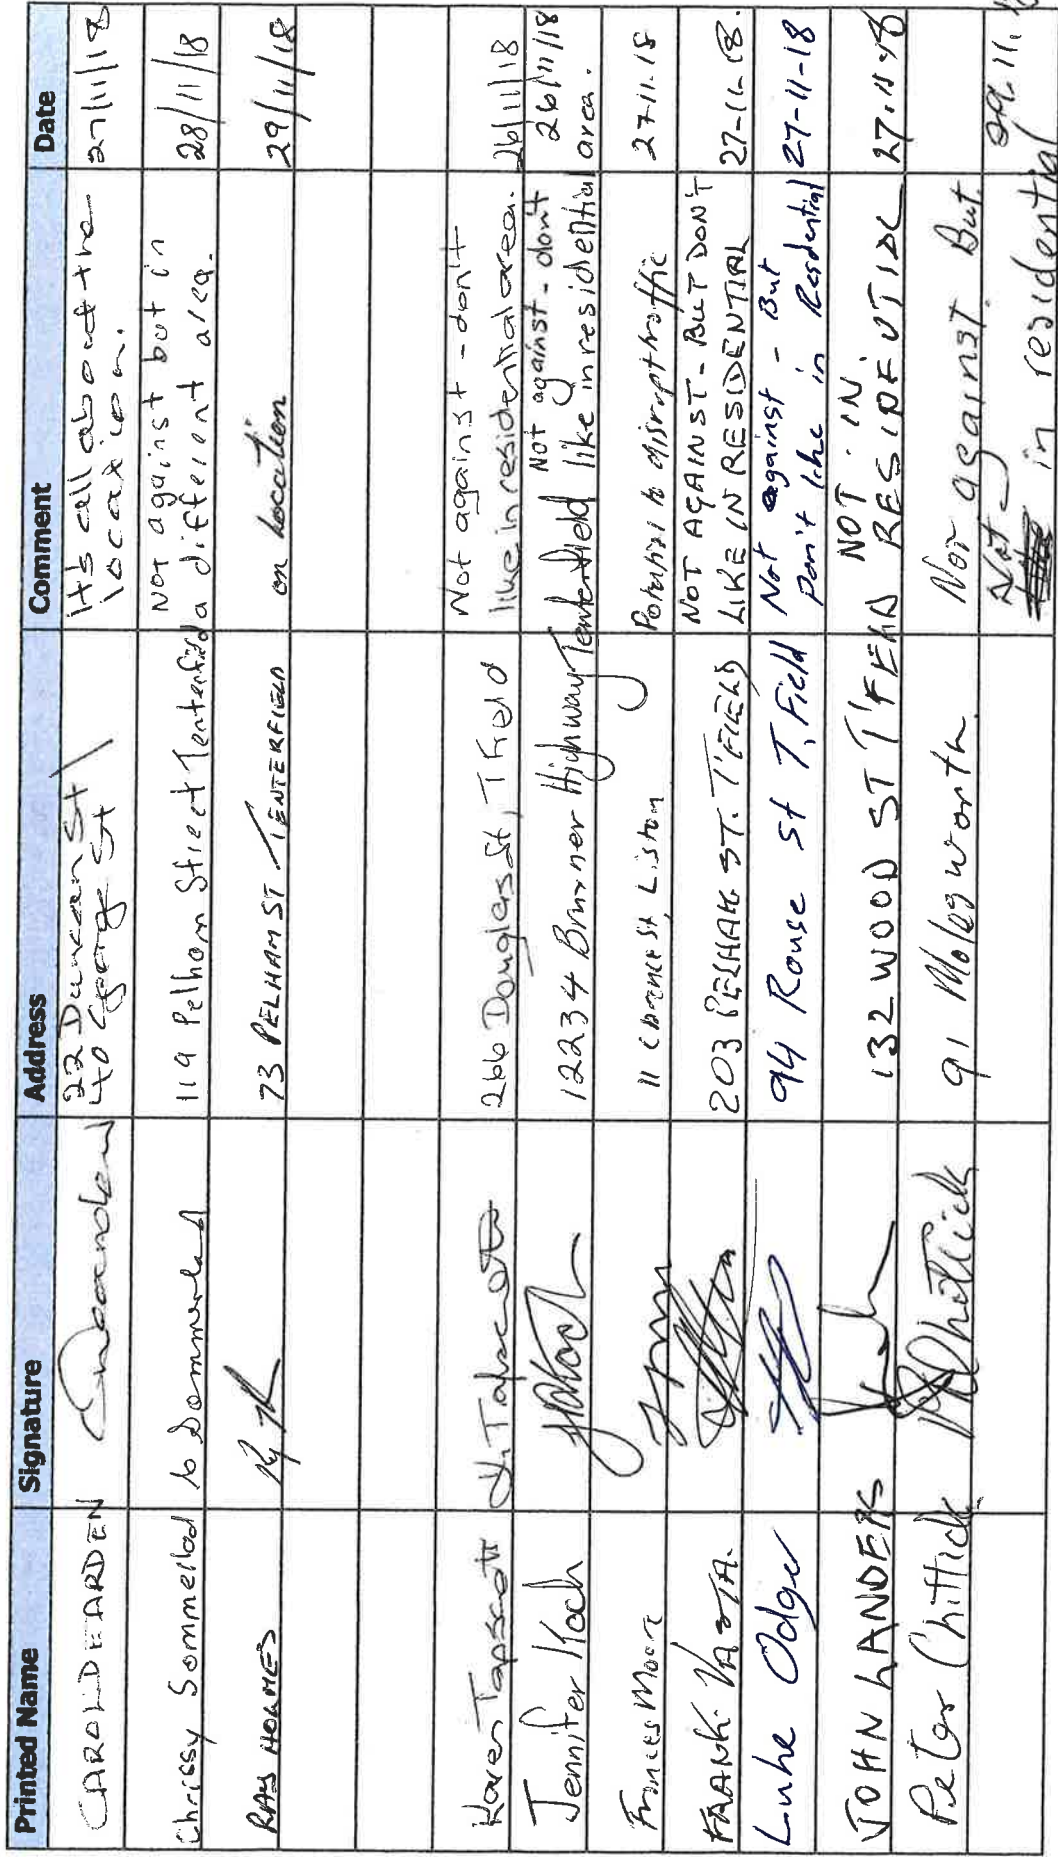 Printed Name Signature Address Comment Date
CAROL DEARDEN 22 Duncan St \ It's all about the 27/11/18
40 George St location.
Chrissy Sommerlad 119 Pelham Street Tenterfield Not against but in 28/11/18
a different area.
RAY HOLMES 73 PELHAM ST TENTERFIELD on Location 29/11/18
Karen Tapscott K. Tapscott 266 Douglas St, T'field Not against - don't
like in residential area. 26/11/18
Jennifer Koch JKoch 12234 Bruxner Highway Tenterfield Not against - don't 26/11/18
like in residential area.
Frances Moore 11 Clarence St, Liston Potential to disrupt traffic 27.11.18
FRANK 203 PELHAM ST. T'FIELD NOT AGAINST - BUT DON'T
LIKE IN RESIDENTIAL 27-11-18.
Luke Odger 94 Rouse st T, Field Not against - But
Don't like in Residential 27-11-18
JOHN LANDERS 132 WOOD ST T'FELD NOT IN
RESIDEUTIAL 27.11.18
Peter Chittick PChittick 91 Molesworth Not against But
Not in residential 29.11.